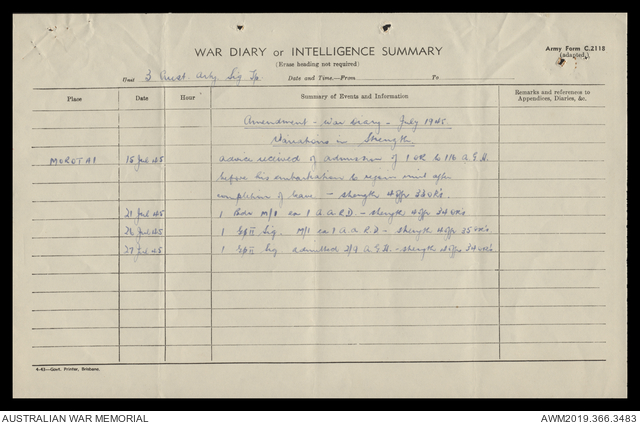 WAR DIARY or INTELLIGENCE SUMMARY
Army Form C.2118
(adapted.)
(Erase heading not required)
Unit 3 Aust. Arty Sig Tp. Date and Time.—From To
Place Date Hour Summary of Events and Information Remarks and references to Appendices, Diaries, &c.
Amendment - War Diary - July 1945.
Variations in Strength
MOROTAI 15 Jul 45 Advice received of admission of 1 OR to 116 A.G.H.
before his embarkation to rejoin unit after
completion of leave - strength 4 offr 33 OR's.
21 Jul 45 1 M/I ex 1 A.A.R.D. - strength 4 offr 34 OR's
26 Jul 45 1 GpII Sig. M/I ex 1 A.A.R.D - strength 4 offr 35 OR's
27 Jul 45 1 GpII Sig admitted 2/9 A.G.H. - strength 4 offr 34 OR's
4-43—Govt. Printer, Brisbane.
AUSTRALIAN WAR MEMORIAL
AWM2019.366.3483